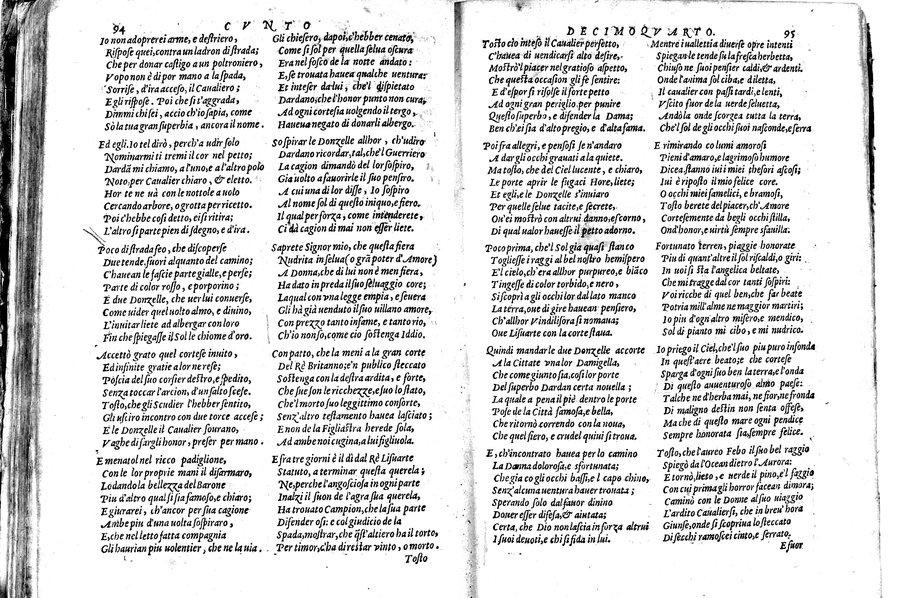 94 CVNTO
Io non adoprerei arme, e destriero,
Rispose quei, contra un ladron di strada;
Che per donar castigo a un poltroniero,
Vopo non è di por mano a la spada,
Sorrise, d'ira acceso, il Caualiero;
E gli rispose. Poi che si t'aggrada,
Dimmi chi sei, accio ch'io sapia, come
Sò la tua gran superbia, ancora il nome.
Ed egli. Io tel dirò, perch'a udir solo
Nominarmi ti tremi il cor nel petto;
Dardã mi chiamo, a l'uno, e a l'altro polo
Noto, per Caualier chiaro, & eletto.
Hor te ne uà con le nottole a uolo
Cercando arbore, o grotta per ricetto.
Poi c'hebbe cosi detto, ei si ritira;
L'altro si parte pien di sdegno, e d'ira.
Poco di strada feo, che discoperse
Due tende, fuori alquanto del camino;
C'hauean le fascie parte gialle, e perse;
Parte di color rosso, e porporino;
E due Donzelle, che uer lui conuerse,
Come uider quel uolto almo, e diuino,
L'inuitar liete ad albergar con loro
Fin che spiegasse il Sol le chiome d'oro.
Accettò grato quel cortese inuito,
Ed infinite gratie a lor ne rese;
Poscia del suo corsier destro, e spedito,
Senza toccar l'arcion, d'un salto scese.
Tosto, che gli Scudier l'hebber sentito,
Gli usciro incontro con due torce accese;
E le Donzelle il Caualier sourano,
Vaghe di fargli honor, preser per mano.
E menatol nel ricco padiglione,
Con le lor proprie mani il disarmaro,
Lodando la bellezza del Barone
Piu d'altro qual si sia famoso, e chiaro;
E giurerei, ch'ancor per sua cagione
Ambe piu d'una uolta sospiraro,
E, che nel letto fatta compagnia
Gli haurian piu uolentier, che ne la uia.
Gli chiesero, dapoi, c'hebber cenato,
Come si sol per quella selua oscura
Era nel fosco de la notte andato:
E, se trouata hauea qualche uentura:
Et inteser da lui, che'l dispietato
Dardano, che l'honor punto non cura,
Ad ogni cortesia uolgendo il tergo,
Haueua negato di donarli albergo.
Sospirar le Donzelle allhor, ch'udiro
Dardano ricordar, tal, che'l Guerriero
La cagion dimandò del lor sospiro,
Già uolto a fauorirle il suo pensiro,
A cui una di lor disse, Io sospiro
Al nome sol di questo iniquo, e fiero.
Il qual per forza, come intenderete,
Ci dà cagion di mai non esser liete.
Saprete Signor mio, che questa fiera
Nudrita in selua (o grã poter d'Amore)
A Donna, che di lui non è men fiera,
Ha dato in preda il suo seluaggio core;
La qual con una legge empia, e seuera
Gli hà già uenduto il suo uillano amore,
Con prezzo tanto infame, e tanto rio,
Ch'io non so, come cio sostenga Iddio.
Con patto, che la meni a la gran corte
Del Rè Britanno; e'n publico steccato
Sostenga con la destra ardita, e forte,
Che sue son le ricchezze, e suo lo stato,
Che'l morto suo leggittimo consorte,
Senz'altro testamento hauea lasciato;
E non de la Figliastra herede sola,
Ad ambe noi cugina, a lui figliuola.
E fra tre giorni è il dì dal Rè Lisuarte
Statuto, a terminar questa querela;
Ne, perche l'angosciosa in ogni parte
Inalzi il suon de l'agra sua querela,
Ha trouato Campion, che la sua parte
Difender osi: e col giudicio de la
Spada, mostrar, che q̃st'altiero ha il torto,
Per timor, c'ha di restar vinto, o morto.
Tosto
DECIMOQVARTO. 95
Tosto cio inteso il Caualier perfetto,
C'hauea di uendicarsi alto desire,
Mostrò'l piacer nel gratioso aspetto,
Che questa occasion gli fe sentire:
E d'esporsi risolse il forte petto
Ad ogni gran periglio, per punire
Questo superbo, e difender la Dama;
Ben ch'ei sia d'alto pregio, e d'alta fama.
Poi fra allegri, e pensosi se n'andaro
A dar gli occhi grauati a la quiete.
Ma tosto, che del Ciel lucente, e chiaro,
Le porte aprir le fugaci Hore, liete;
Et egli, e le Donzelle s'inuiaro
Per quelle selue tacite, e secrete,
Ou'ei mostrò con altrui danno, e scorno,
Di qual ualor hauesse il petto adorno.
Poco prima, che'l Sol già quasi stanco
Togliesse i raggi al bel nostro hemispero
E'l cielo, ch'era allhor purpureo, e biãco
Tingesse di color torbido, e nero,
Si scoprì a gli occhi lor dal lato manco
La terra, oue di gire hauean pensiero,
Ch'allhor Vindilisora si nomaua;
Oue Lisuarte con la corte staua.
Quindi mandar le due Donzelle accorte
A la Cittate vna lor Damigella,
Che come giunto sia, cosi lor porte
Del superbo Dardan certa nouella;
La quale a pena il piè dentro le porte
Pose de la Città famosa, e bella,
Che ritornò correndo con la noua,
Che quel fiero, e crudel quiui si troua.
E, ch'incontrato hauea per lo camino
La Donna dolorosa, e sfortunata;
Che gia co gli occhi bassi, e'l capo chino,
Senz'alcuna uentura hauer trouata;
Sperando solo dal fauor diuino
Douer esser difesa, & aiutata;
Certa, che Dio non lascia in forza altrui
I suoi deuoti, e chi si fida in lui.
Mentre i ualletti a diuerse opre intenti
Spiegan le tende su la fresca herbetta,
Chiuso ne suoi pensier caldi, & ardenti.
Onde l'anima sol ciba, e diletta,
Il caualier con passi tardi, e lenti,
Vscito fuor de la uerde seluetta,
Andò là onde scorgea tutta la terra,
Che'l sol de gli occhi suoi nasconde, e serra
E rimirando co lumi amorosi
Pieni d'amaro, e lagrimoso humore
Dicea stanno iui i miei thesori ascosi;
Iui è riposto il mio felice core.
O occhi miei famelici, e bramosi,
Tosto berete del piacer, ch'Amore
Cortesemente da begli occhi stilla,
Ond'honor, e uirtù sempre sfauilla.
Fortunato terren, piaggie honorate
Piu di quant'altre il sol riscaldi, o giri:
In uoi si sta l'angelica beltate,
Che mi tragge dal cor tanti sospiri:
Voi ricche di quel ben, che far beate
Potria mill'alme ne maggior martiri;
Io piu d'ogni altro misero, e mendico,
Sol di pianto mi cibo, e mi nudrico.
Io priego il Ciel, che'l suo piu puro infonda
In quest'aere beato; e che cortese
Sparga d'ogni suo ben la terra, e l'onda
Di questo auuenturoso almo paese:
Talche ne d'herba mai, ne fior, ne fronda
Di maligno destin non senta offese,
Ma che di questo mare ogni pendice
Sempre honorata sia, sempre felice.
Tosto, che l'aureo Febo il suo bel raggio
Spiegò da l'Ocean dietro l'Aurora:
E tornò, lieto, e uerde il pino, e'l faggio
Con cui prima gli horror facean dimora;
Caminò con le Donne al suo uiaggio
L'ardito Caualiersi, che in breu'hora
Giunse, onde si scopriua lo steccato
Di secchi ramoscei cinto, e serrato.
E fuor